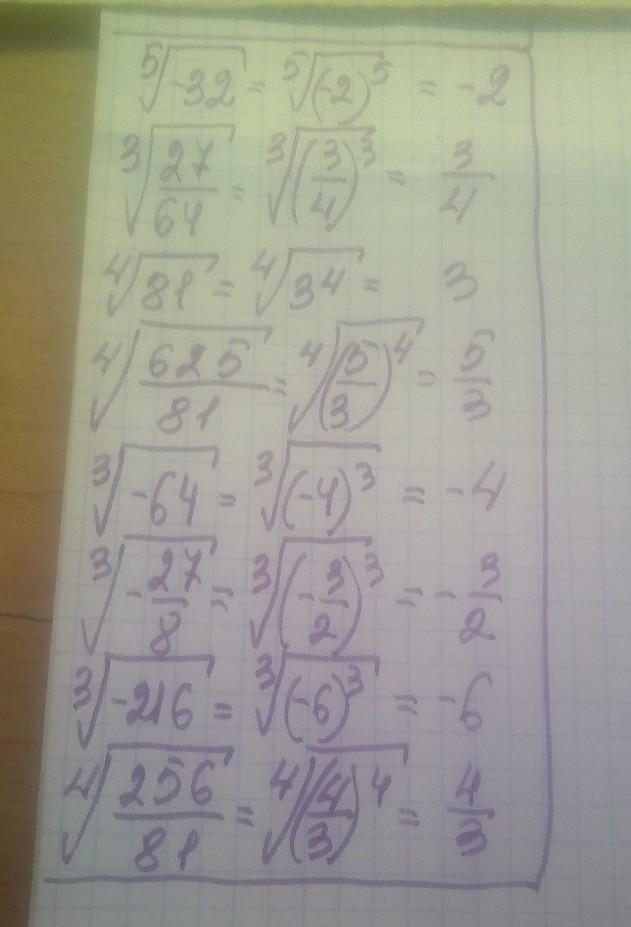 ⁵√-32 = ⁵√(-2)⁵ = -2
³√(27/64) = ³√(3/4)³ = 3/4
⁴√81 = ⁴√3⁴ = 3
⁴√(625/81) = ⁴√(5/3)⁴ = 5/3
³√-64 = ³√(-4)³ = -4
³√(-27/8) = ³√(-3/2)³ = -3/2
³√-216 = ³√(-6)³ = -6
⁴√(256/81) = ⁴√(4/3)⁴ = 4/3